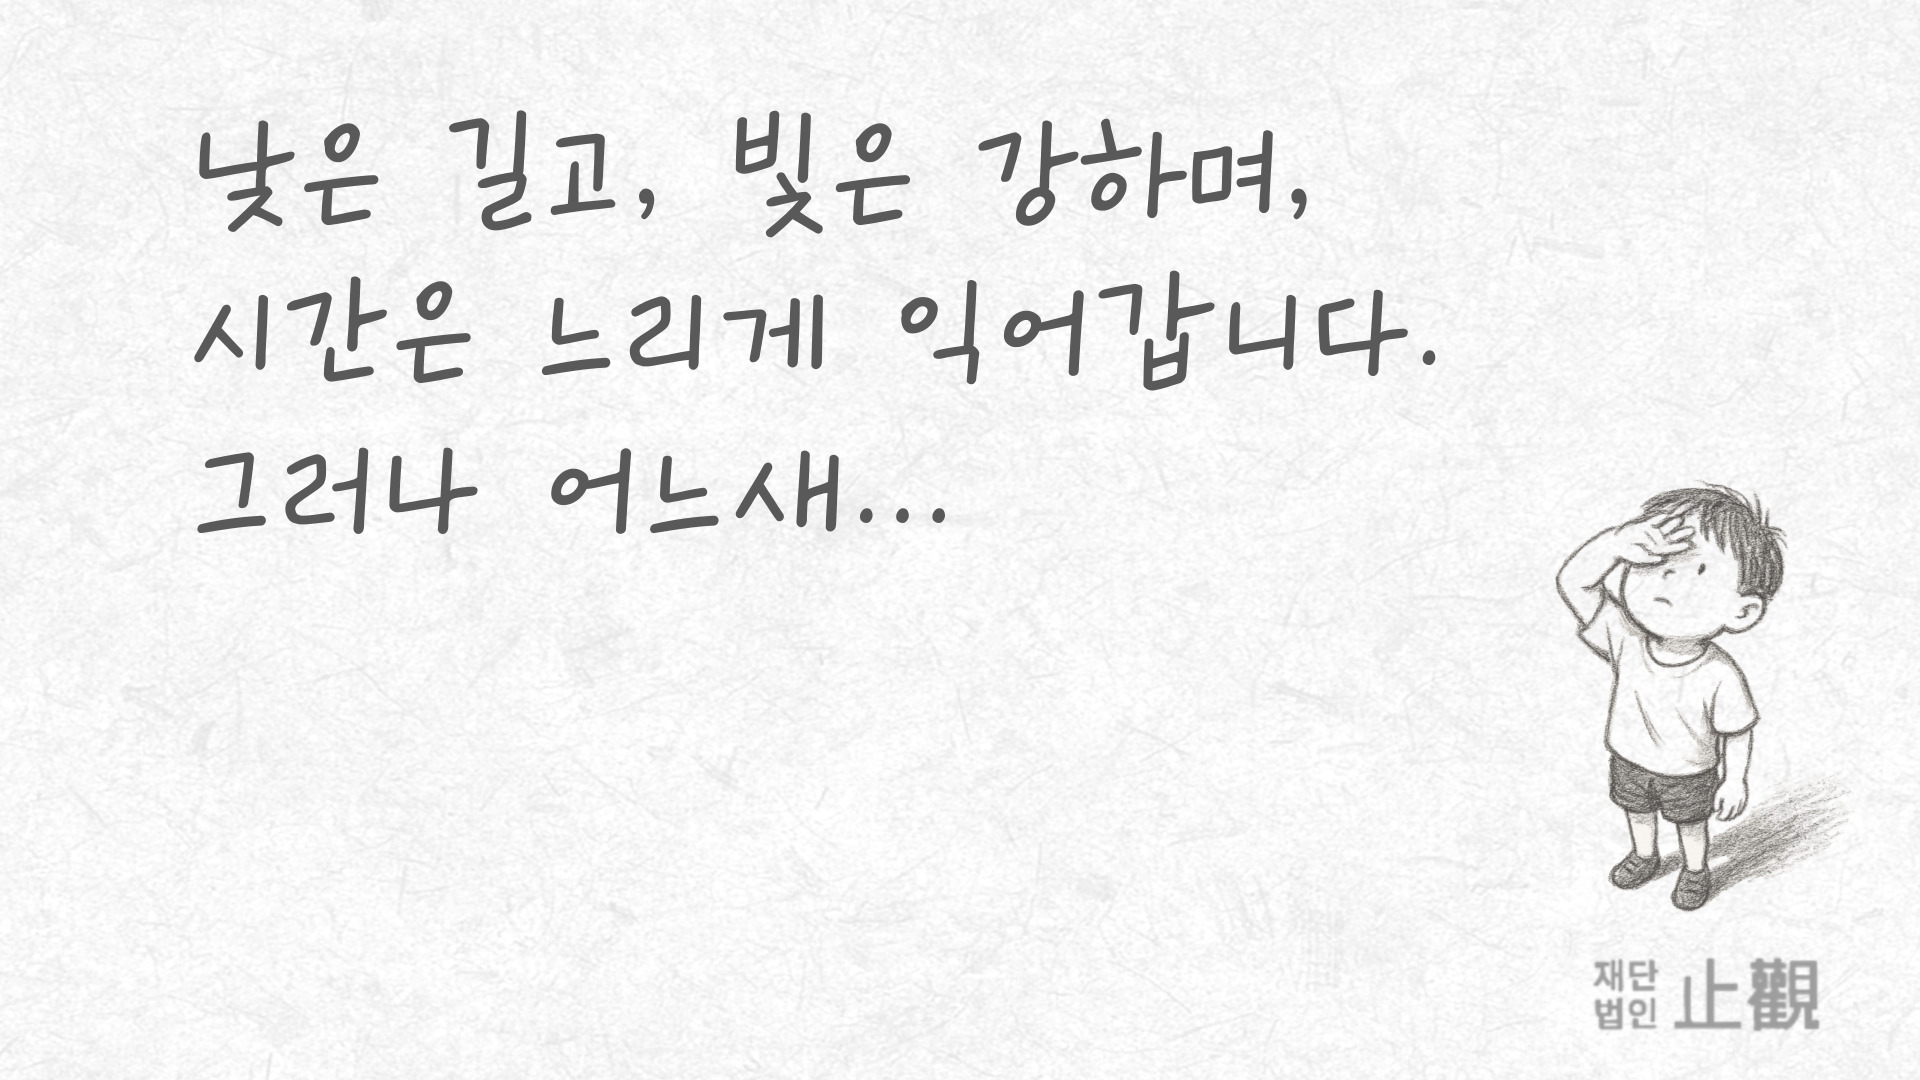 낮은 길고, 빛은 강하며,
시간은 느리게 익어갑니다.
그러나 어느새...
재단
법인 止觀